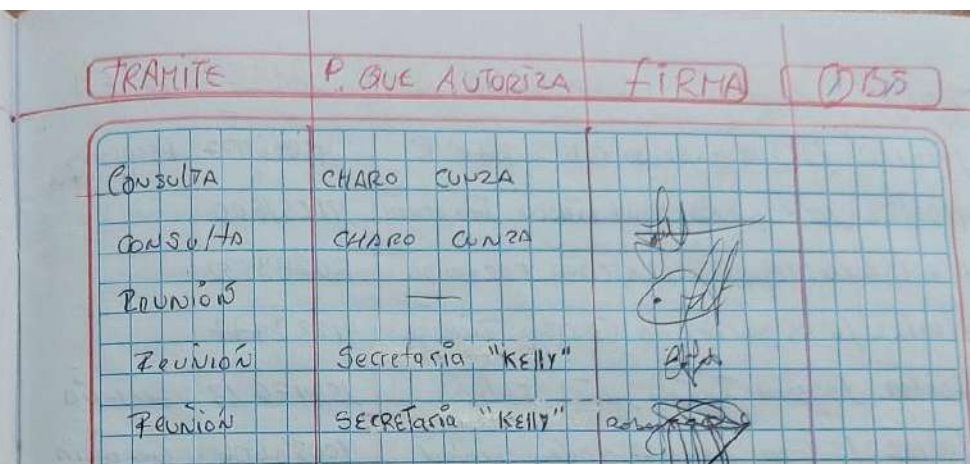 TRAMITE P. QUE AUTORIZA FIRMA OBS
CONSULTA CHARO CUNZA
CONSULTA CHARO CUNZA
REUNIÓN —
REUNIÓN Secretaria "KELLY"
REUNIÓN SECRETaria "KELLY"